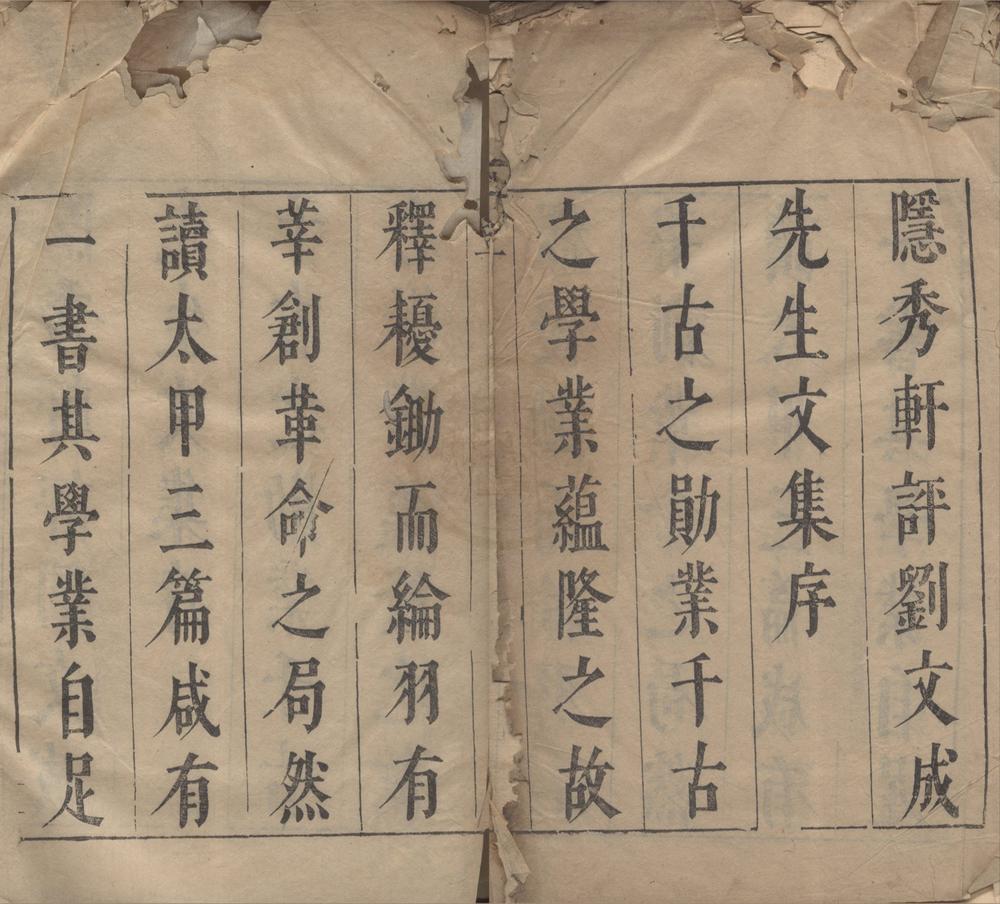 隱秀軒評劉文成
先生文集序
千古之勛業千古
之學業蘊隆之故
釋耰鋤而綸羽有
莘創革命之局然
讀太甲三篇咸有
一書其學業自足